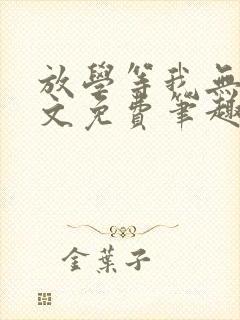 放學等我無
文免費筆趣
金葉子